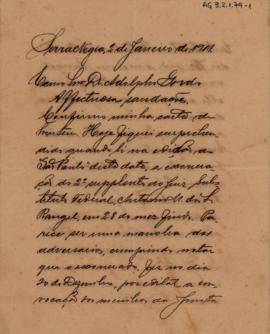 AG 3.2.1.79-1
Serra Negra, 2 de Janeiro de 1912
Exmo Snr Dr. Adolpho Gordo
Affectuosa saudação.
Confirmo minha carta de
Hoje fiquei surprehen
dido quando li na edição do
São Paulo desta data, a exonera
ção do 2º supplente do Juiz Subs
tituto Federal,
Rangel, em 28 do mez findo. Pa
rece ser uma manobra dos
adversarios, cumprindo notar
que o exonerado, fez no dia
20 de Dezembro, por edital a
convocação dos membros da Junta